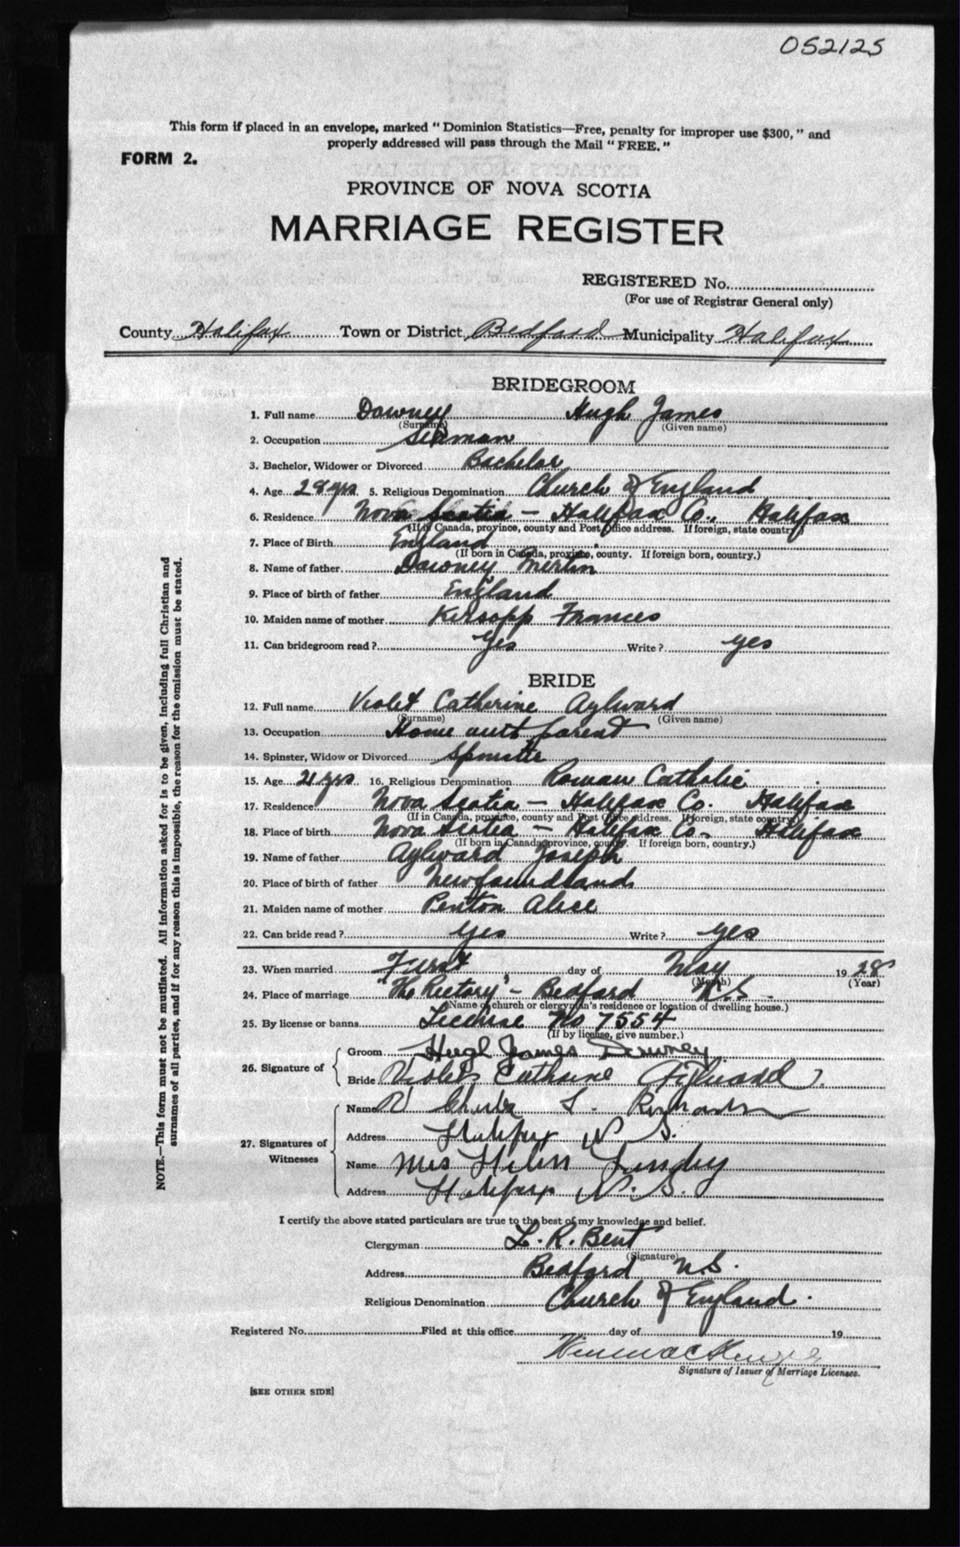 052125
This form if placed in an envelope, marked "Dominion Statistics—Free, penalty for improper use $300," and
properly addressed will pass through the Mail "FREE."
FORM 2.
PROVINCE OF NOVA SCOTIA
MARRIAGE REGISTER
REGISTERED No.
(For use of Registrar General only)
County Halifax Town or District Bedford Municipality Halifax
BRIDEGROOM
1. Full name Downey Hugh James
(Surname) (Given name)
2. Occupation Seaman
3. Bachelor, Widower or Divorced Bachelor
4. Age 28 yrs. 5. Religious Denomination Church of England
6. Residence Nova Scotia - Halifax Co. Halifax
(If in Canada, province, county and Post Office address. If foreign, state country)
7. Place of Birth England
(If born in Canada, province, county. If foreign born, country.)
8. Name of father Downey Mertin
9. Place of birth of father England
10. Maiden name of mother Kirsopp Frances
11. Can bridegroom read? Yes Write? yes
BRIDE
12. Full name Violet Catherine Aylward
(Surname) (Given name)
13. Occupation Home with parent
14. Spinster, Widow or Divorced Spinster
15. Age 21 yrs 16. Religious Denomination Roman Catholic
17. Residence Nova Scotia - Halifax Co. Halifax
(If in Canada, province, county and Post Office address. If foreign, state country)
18. Place of birth Nova Scotia - Halifax Co. Halifax
(If born in Canada, province, county. If foreign born, country.)
19. Name of father Aylward Joseph
20. Place of birth of father Newfoundland
21. Maiden name of mother Penton Alice
22. Can bride read? yes Write? yes
23. When married First day of May 1928
(Month) (Year)
24. Place of marriage "The Rectory" - Bedford N.S.
(Name of church or clergyman's residence or location of dwelling house.)
25. By license or banns License No 7554
(If by license, give number.)
26. Signature of
Groom Hugh James Downey
Bride Violet Catherine Aylward.
27. Signatures of Witnesses
Name L.
Address Halifax N. S.
Name Mrs Helen
Address Halifax N. S.
I certify the above stated particulars are true to the best of my knowledge and belief.
Clergyman L. R. Bent
(Signature)
Address Bedford N.S.
Religious Denomination Church of England.
Registered No. Filed at this office day of 19
Signature of Issuer of Marriage Licenses.
[SEE OTHER SIDE]
NOTE.—This form must not be mutilated. All information asked for is to be given, including full Christian and
surnames of all parties, and if for any reason this is impossible, the reason for the omission must be stated.